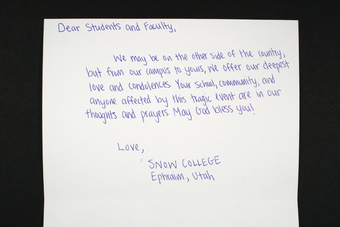 Dear Students and Faculty,
We may be on the other side of the country,
but from our campus to yours, we offer our deepest
love and condolences. Your school, community, and
anyone affected by this tragic event are in our
thoughts and prayers. May God bless you!
Love,
SNOW COLLEGE
Ephraim, Utah